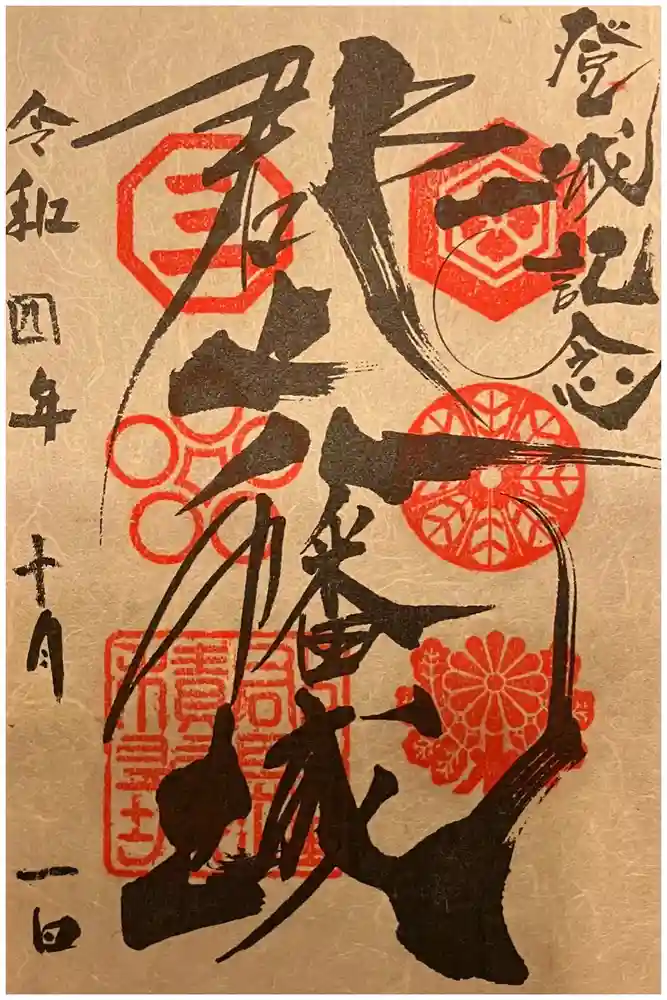 登城記念
郡上八幡城
令和四年 十月 一日
三